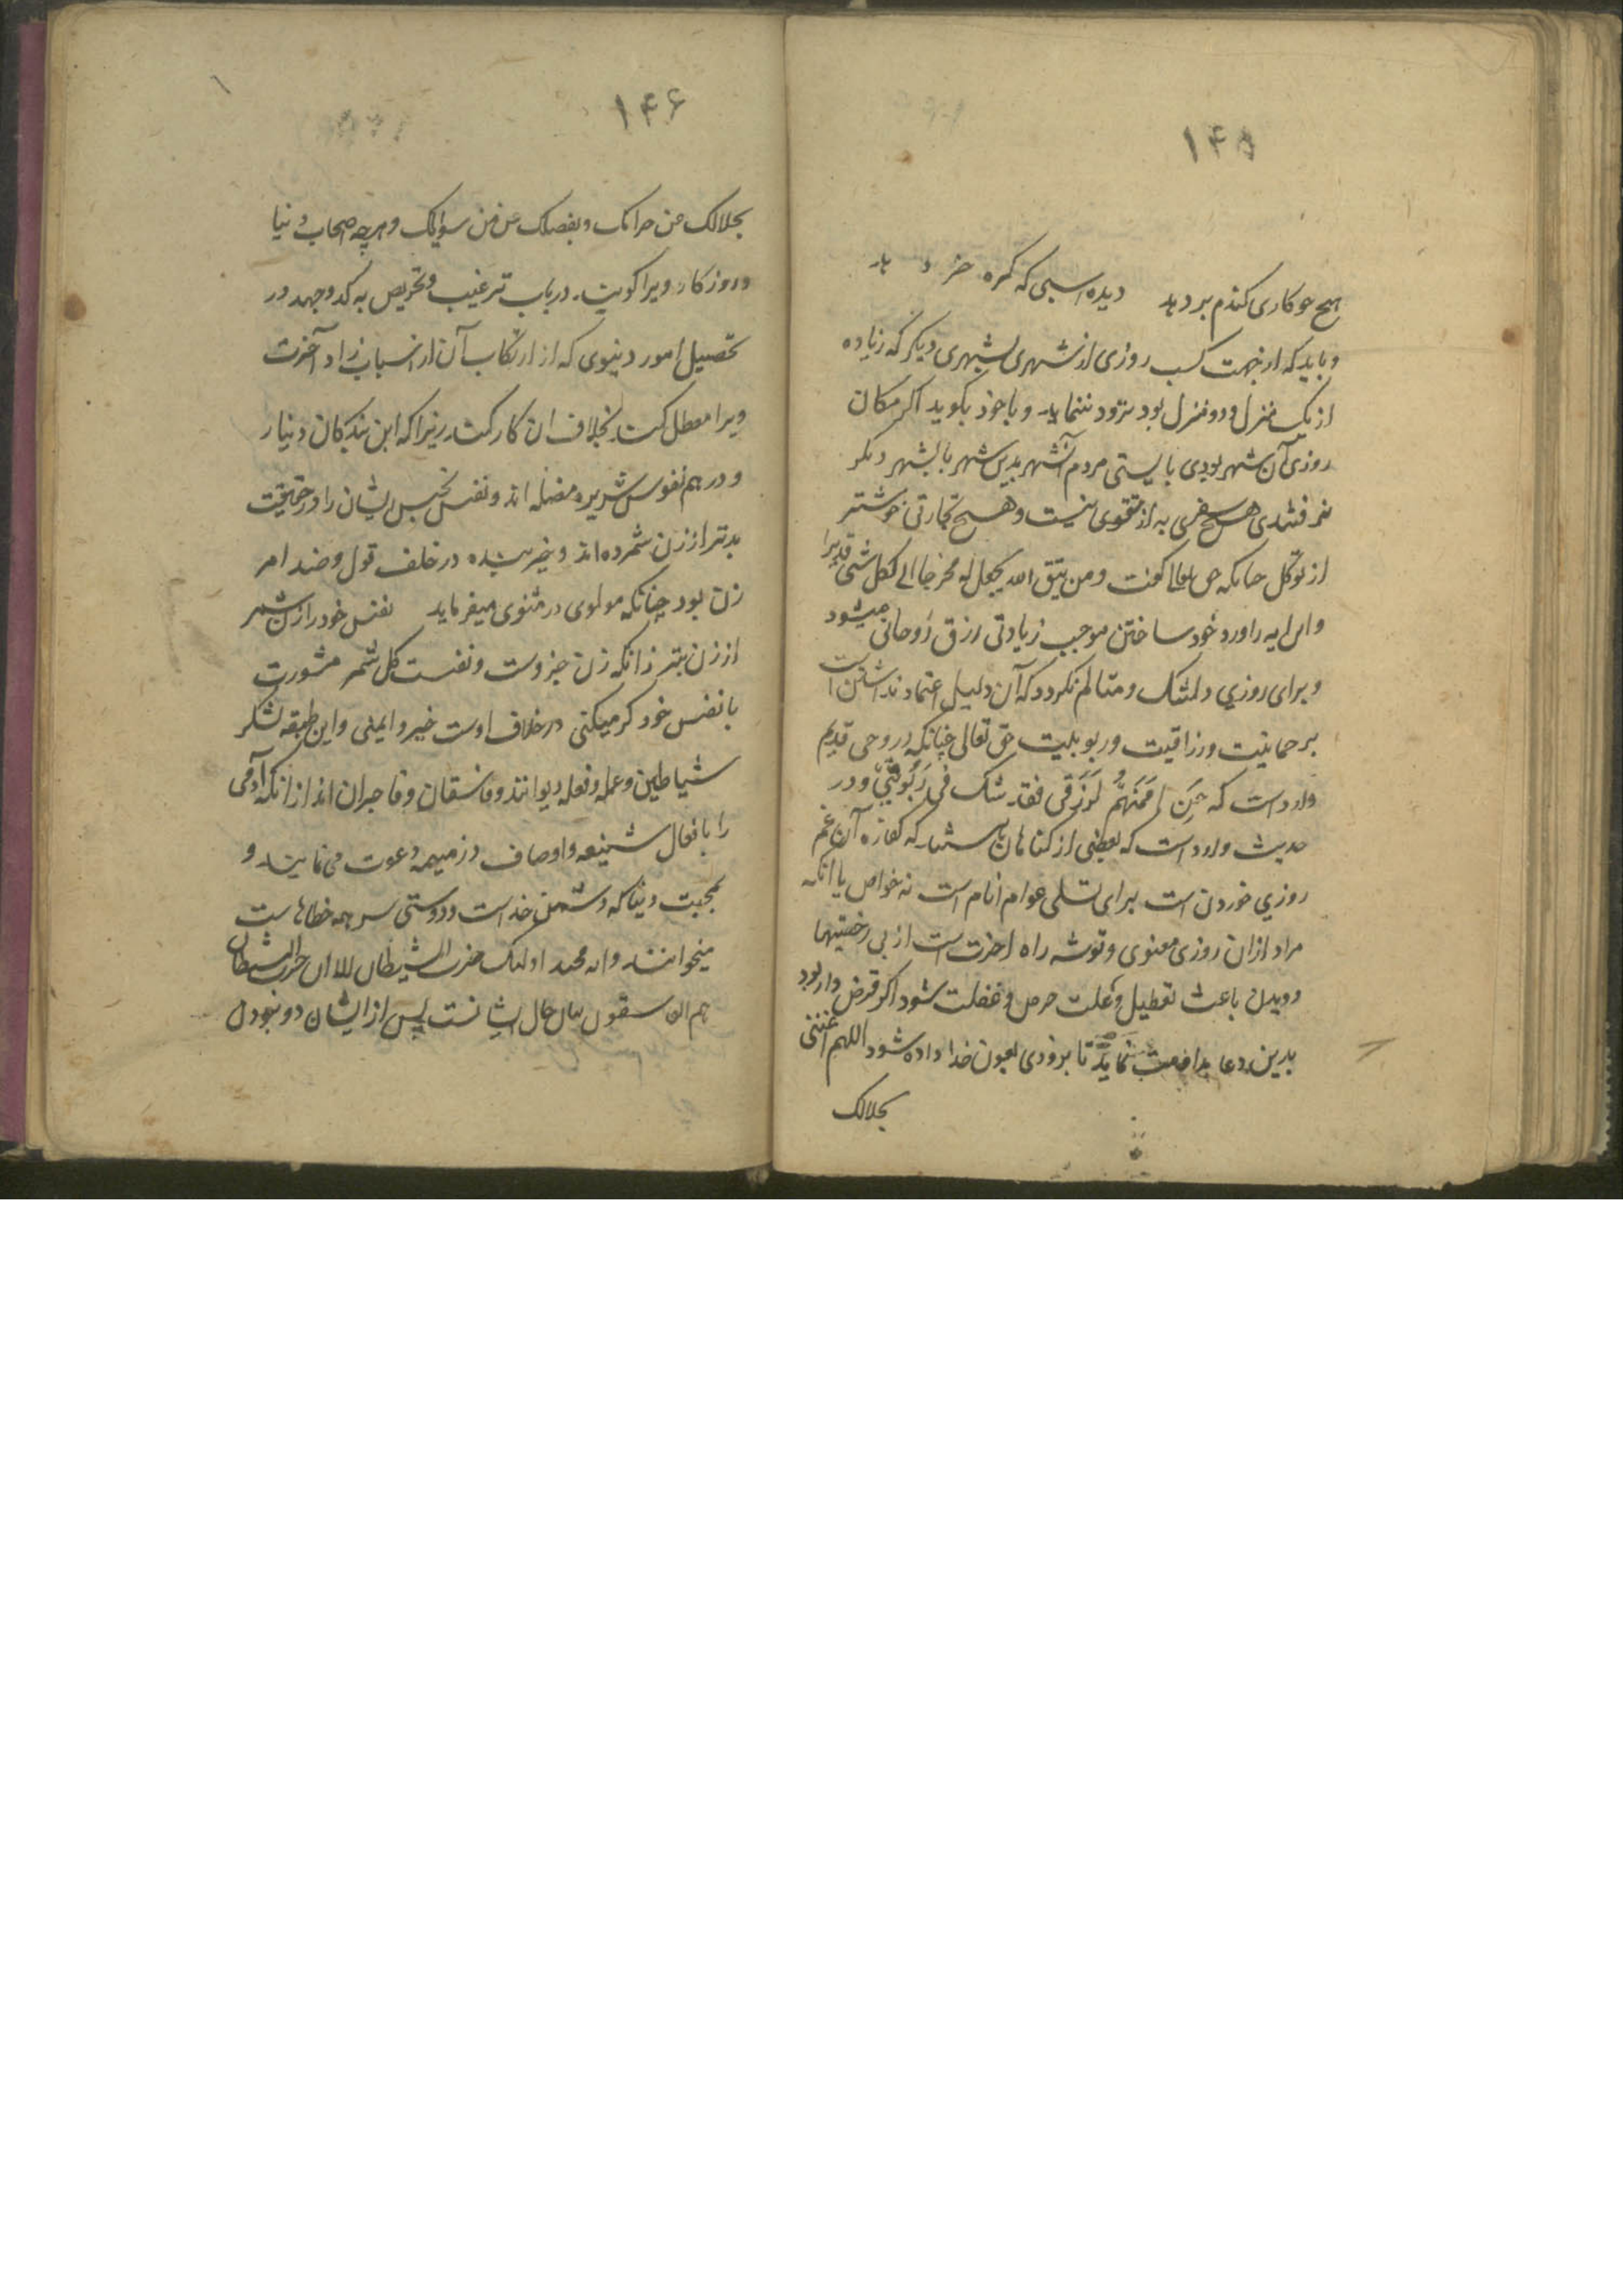 ۱۴۵
هیچ جو کاری کندم بر دهد دیده اسبی که کره خر دهد
و باید که از جهت کسب روزی از شهری بشهری دیکر که زیاده
از یک منزل و دو منزل بود تردد ننماید و با خود بکوید اکر مکان
روزی آن شهر بودی بایستی مردم آنشهر بدین شهر یا بشهر دیکر
نمرفتندی هیچ سفری به از تقوی نیست و هیچ تجارتی خوشتر
از توکل چنانکه حق تعالی کفت و من یتق الله یجعل له مخرجا الی لکل شی قدرا
و این ایه را ورد خود ساختن موجب زیادتی رزق روحانی میشود
و برای روزی دلتنک و متالم نکردد که آن دلیل اعتماد نداشتن است
بر حمانیت و رزاقیت و ربوبیت حق تعالی چنانکه در وحی قدیم
وارد است که لرزقی فقد شک فی ربوبیتی و در
حدیث وارد است که بعضی از کناهان باشد که کفاره آن غم
روزی خوردن است برای تسلی عوام انام است نه خواص یا انکه
مراد ازان روزی معنوی و توشه راه اخرت است از بی رخصتیها
و دیدن باعث تعطیل و علت حرص و غفلت شود اکر قرض دار بود
بدین دعا مداومت نماید تا بزودی بعون خدا داده شود اللهم اغننی
بحلالک
۱۴۶
بحلالک من حرامک و بفضلک عن من سوایک و هرچه اصحاب دنیا
و روزکار ویرا کویند در باب ترغیب و تحریص به کد و جهد در
تحصیل امور دنیوی که از ارتکاب آن از اسباب زاد آخرت
ویرا معطل کند بخلاف ان کار کند زیرا که این بندکان دینار
و درهم نفوس شریره مضله اند و نفس نحبس ایشان را در حقیقت
بدتر از زن شمرده اند و خیر بنده در خلف قول و ضد امر
زن بود چنانکه مولوی در مثنوی میفرماید نفس خود را زن شمر
از زن بتر زانکه زن جزوست و نفست کل شمر مشورت
با نفس خود کر میکنی در خلاف اوست خیر و ایمنی و این طبقه لشکر
شیاطین و عمله و فعله دیوانند و فاسقان و فاجران اند از انکه آدمی
را بافعال شنیعه و اوصاف ذمیمه دعوت می نمایند و
بمحبت دنیا که دشمن خداست و دوستی سر همه خطاهاست
میخوانند وایه مجید اولئک حزب الشیطان الا ان حزب الشیطان
هم الخاسرون بیان حال ایشانست پس از ایشان دو نبودن